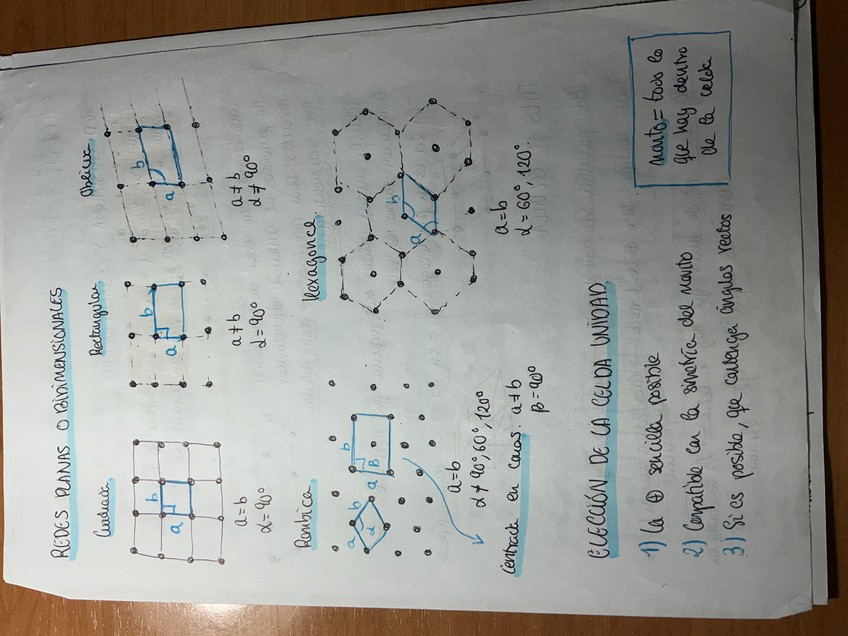 REDES PLANAS O BIDIMENSIONALES
Cuadrada
Rectangular
Oblicua
a b
a b
a b
a = b
α = 90°
a ≠ b
α = 90°
a ≠ b
α ≠ 90°
Rómbica
Hexagonal
a b
α
a b
β
a b
a = b
α ≠ 90°, 60°, 120°
a = b
α = 60°, 120°
Centrada en caras: a ≠ b
β = 90°
ELECCIÓN DE LA CELDA UNIDAD
1) La + sencilla posible
2) Compatible con la simetría del manto
3) Si es posible, que contenga ángulos rectos
manto = todo lo
que hay dentro
de la celda